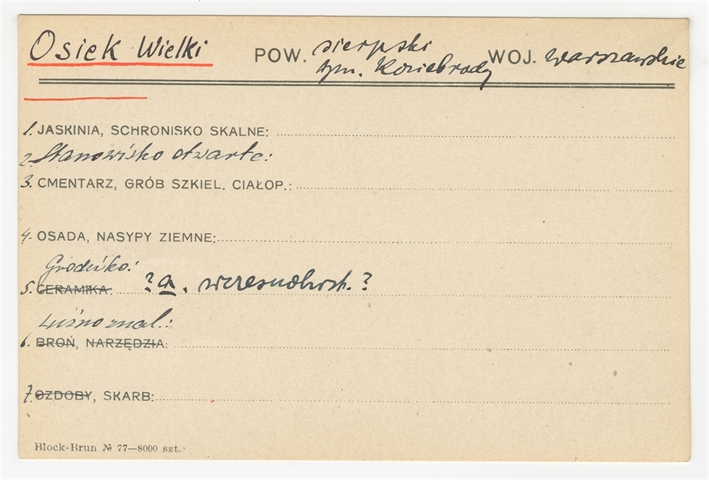 Osiek Wielki POW. sierpski WOJ. warszawskie
gm. Koziebrody
1. JASKINIA, SCHRONISKO SKALNE:
2. Stanowisko otwarte:
3. CMENTARZ, GRÓB SZKIEL. CIAŁOP.:
4. OSADA, NASYPY ZIEMNE:
Grodzisko:
5. CERAMIKA: ? a, wczesnohist. ?
Luźno znal.:
6. BROŃ, NARZĘDZIA:
7. OZDOBY, SKARB:
Block-Brun № 77—8000 szt.